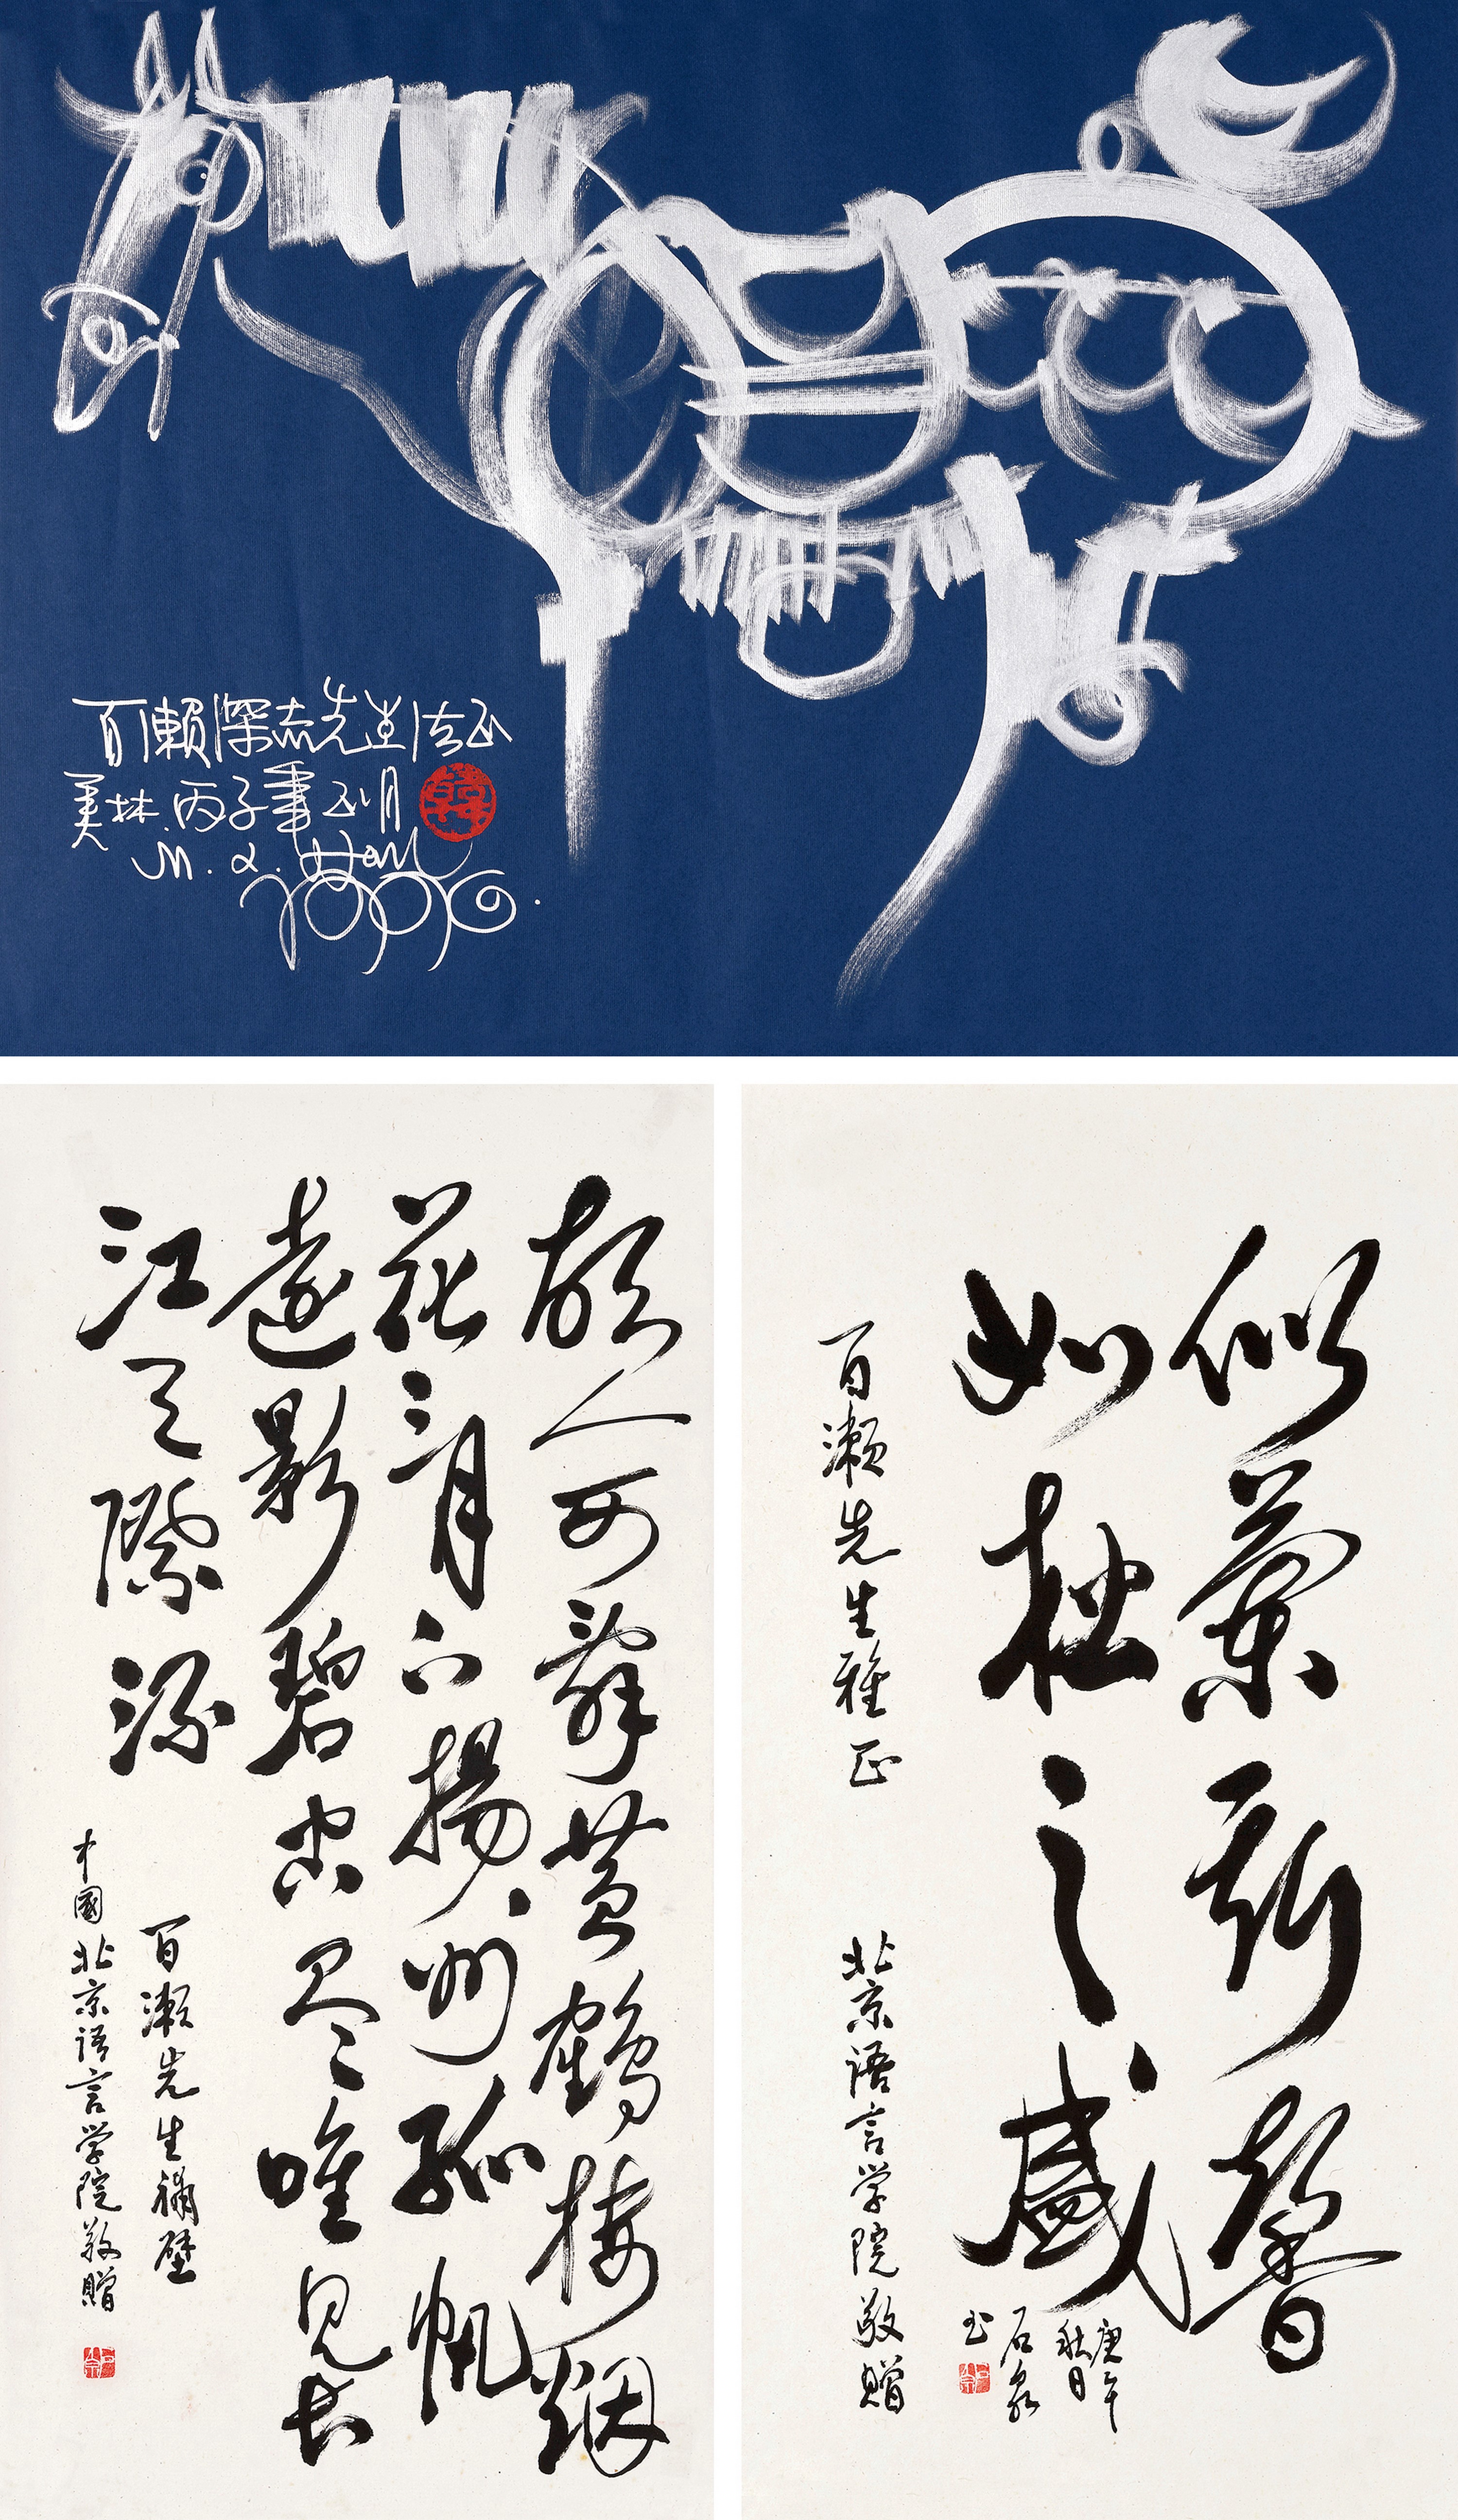 百瀨深志先生法正
美林.丙子年正月
M.L.Han
1996.
故人西辭黄鶴楼烟
花三月下揚州孤帆
遠影碧空尽唯見长
江天際流
百瀬先生補壁
中國北京語言学院敬贈
似蘭斯馨
如松之盛
庚午
秋日
石泉
书
百瀬先生雅正
北京語言学院敬贈